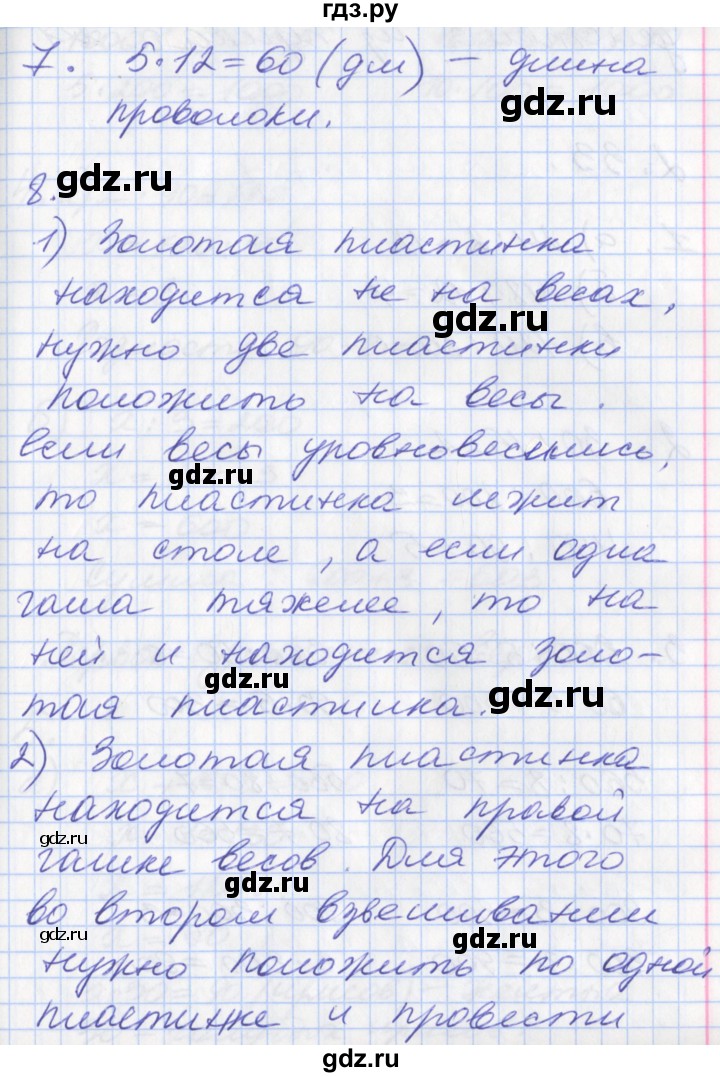 гдз.ру
7. 5·12=60 (дм) – длина
проволоки.
gdz.ru
8.
gdz.ru
1) Золотая пластинка
находится не на весах,
gdz.ru
нужно две пластинки
положить на весы.
Если весы уровновесились,
gdz.ru
gdz.ru
то пластинка лежит
на столе, а если одна
чаша тяжелее, то на
ней и находится золо-
gdz.ru
gdz.ru
тая пластинка.
2) Золотая пластинка
находится на правой
gdz.ru
чашке весов. Для этого
gdz.ru
во втором взвешивании
gdz.ru
gdz.ru
нужно положить по одной
пластинке и провести
gdz.ru
gdz.ru